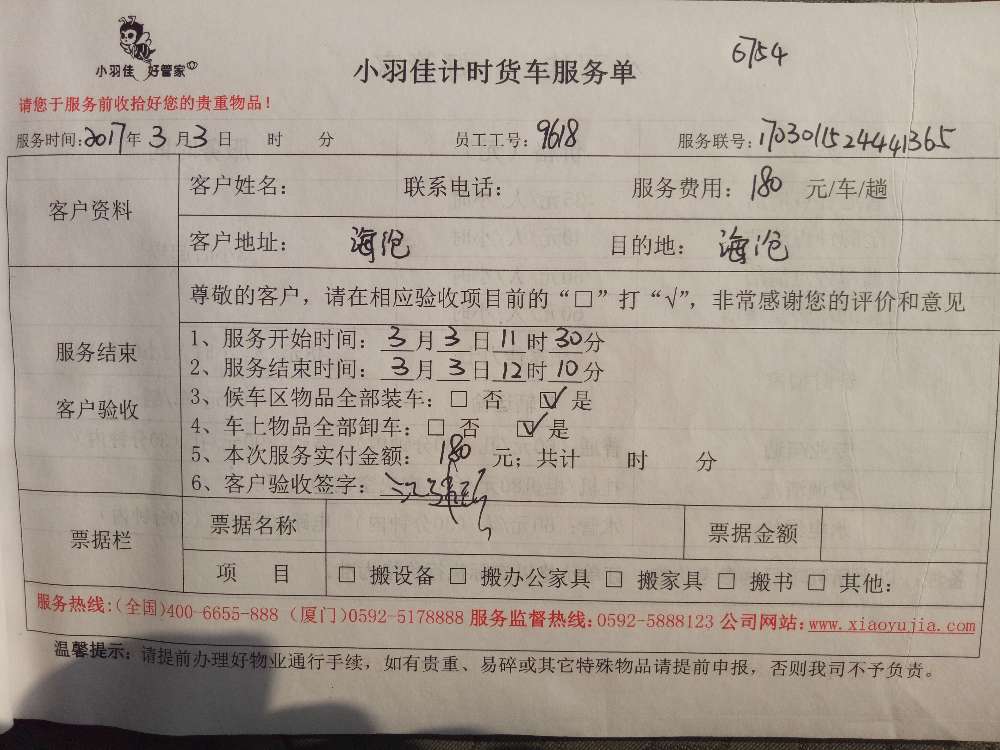 小羽佳 好管家
小羽佳计时货车服务单
6754
请您于服务前收拾好您的贵重物品！
服务时间：2017年3月3日 时 分 员工工号：9618 服务联号：170301152444​1365
客户资料
客户姓名： 联系电话： 服务费用：180 元/车/趟
客户地址： 海沧 目的地： 海沧
服务结束
客户验收
尊敬的客户，请在相应验收项目前的“□”打“√”，非常感谢您的评价和意见
1、服务开始时间：3月3日11时30分
2、服务结束时间：3月3日12时10分
3、候车区物品全部装车：□ 否 ☑ 是
4、车上物品全部卸车：□ 否 ☑ 是
5、本次服务实付金额： 180 元；共计 时 分
6、客户验收签字：
票据栏
票据名称 票据金额
项 目 □ 搬设备 □ 搬办公家具 □ 搬家具 □ 搬书 □ 其他：
服务热线：（全国）400-6655-888（厦门）0592-5178888 服务监督热线：0592-5888123 公司网站：www.xiaoyujia.com
温馨提示：请提前办理好物业通行手续，如有贵重、易碎或其它特殊物品请提前申报，否则我司不予负责。